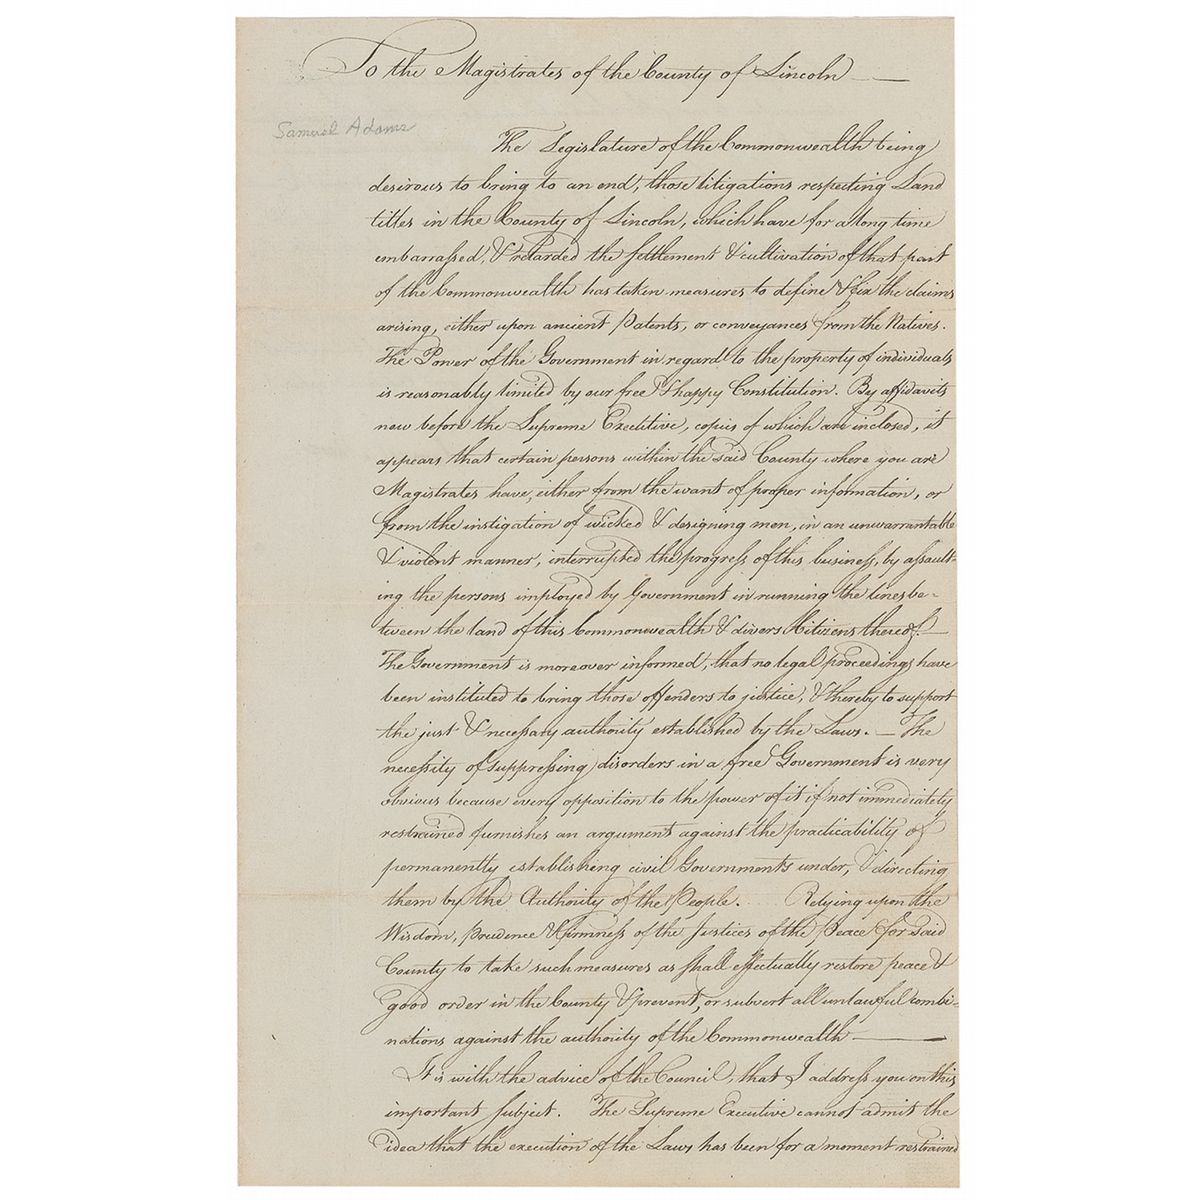 To the Magistrates of the County of Lincoln
Samuel Adams
The Legislature of the Commonwealth being
desirous to bring to an end, those litigations respecting Land
titles in the County of Lincoln, which have for a long time
embarrassed, & retarded the settlement & cultivation of that part
of the Commonwealth has taken measures to define & fix the claims
arising, either upon ancient Patents, or conveyances from the Natives.
The Power of the Government in regard to the property of individuals
is reasonably limited by our free & happy Constitution. By affidavits
now before the Supreme Executive, copies of which are inclosed, it
appears that certain persons within the said County where you are
Magistrates have, either from the want of proper information, or
from the instigation of wicked & designing men, in an unwarrantable
& violent manner, interrupted the progress of this business, by assault-
ing the persons imployed by Government in running the lines be-
tween the land of this Commonwealth & divers Citizens thereof. —
The Government is moreover informed, that no legal proceedings have
been instituted to bring those offenders to justice, & thereby to support
the just & necessary authority established by the Laws. — The
necessity of suppressing disorders in a free Government is very
obvious because every opposition to the power of it if not immediately
restrained furnishes an argument against the practicability of
permanently establishing civil Governments under, & directing
them by the Authority of the People. Relying upon the
Wisdom, prudence & firmness of the Justices of the Peace for said
County to take such measures as shall effectually restore peace &
good order in the County & prevent, or subvert all unlawful combi-
nations against the authority of the Commonwealth —
It is with the advice of the Council, that I address you on this
important subject. The Supreme Executive cannot admit the
idea that the execution of the Laws has been for a moment restrained